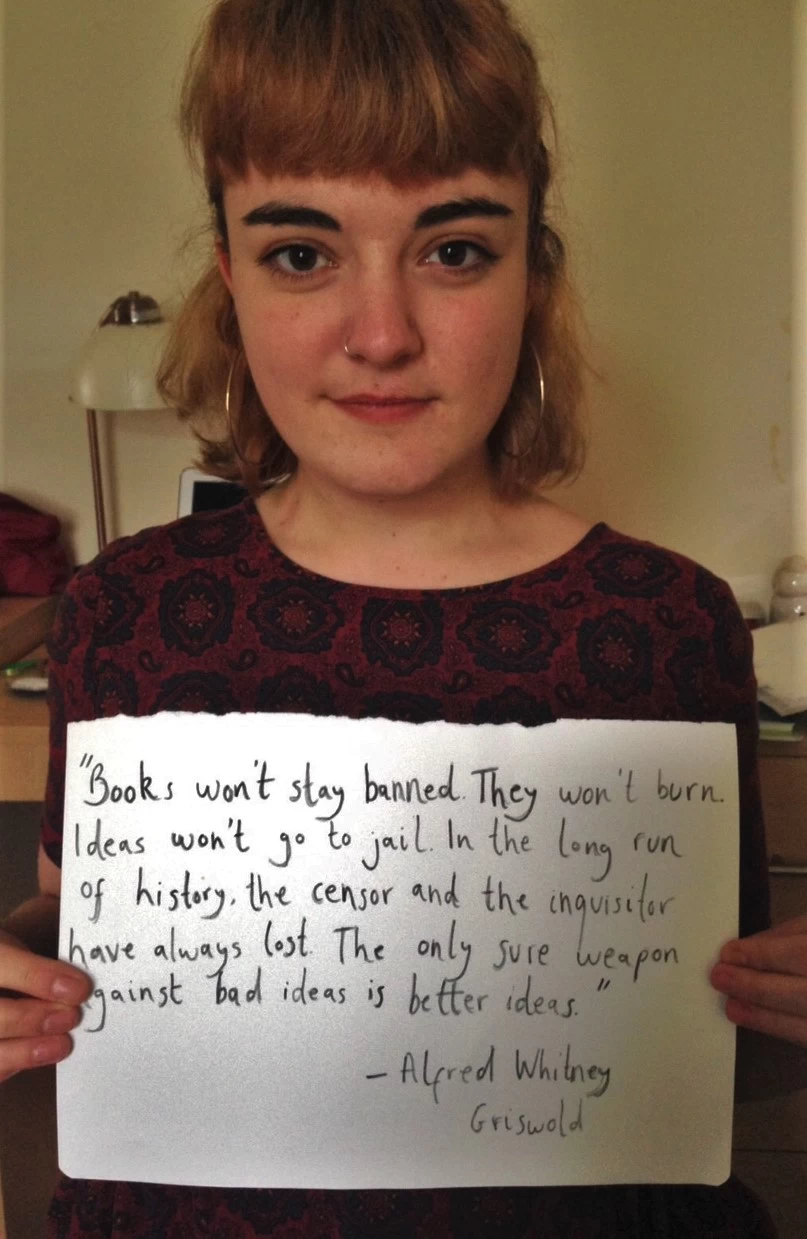 "Books won't stay banned. They won't burn.
Ideas won't go to jail. In the long run
of history, the censor and the inquisitor
have always lost. The only sure weapon
against bad ideas is better ideas."
– Alfred Whitney
Griswold